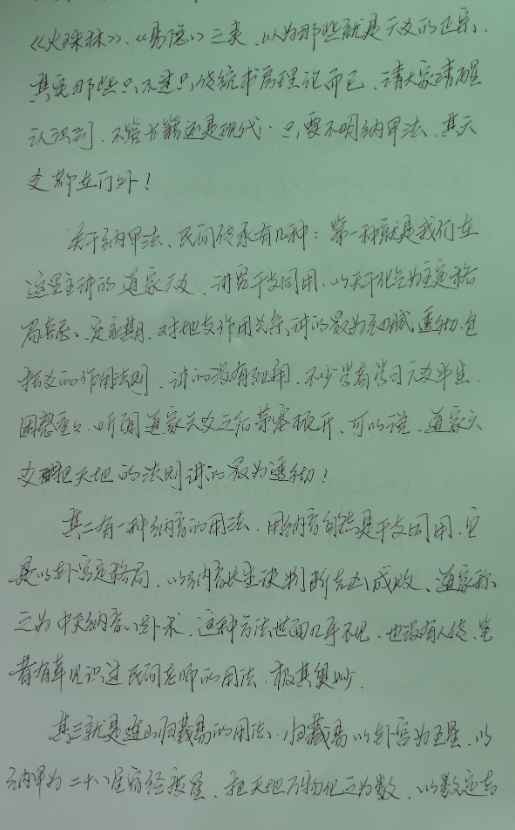 《火珠林》、《易隐》之类，以为那些就是六爻的正宗，
其实那些只不过只传统书房理论而已，请大家清醒
认识到，不管古籍还是现代，只要不明纳甲法，其六
爻都在门外！
关于纳甲法，民间传承有几种：第一种就是我们在
这里主讲的道家六爻，讲究干支同用，以天干化气为主定格
局，定应期，对地支作用关系讲的最为细腻透彻，包
括爻的作用法则，讲的没有死角，不少学者学习六爻半生，
困惑重重，听闻道家六爻之后茅塞顿开，可以说，道家六
爻把天地的法则讲的最为透彻！
其二有一种纳音的用法，用纳音自然是干支同用，它
是以卦宫定格局，以纳音长生诀判断吉凶成败，道家称
之为中天纳音卦术，这种方法世面几乎不见，也没有人传，笔
者有幸见识过民间老师的用法，极其奥妙。
其三就是连山归藏易的用法，归藏易以卦宫为五星，以
纳甲为二十八星宿经度星，把天地万物化之为数，以数定吉